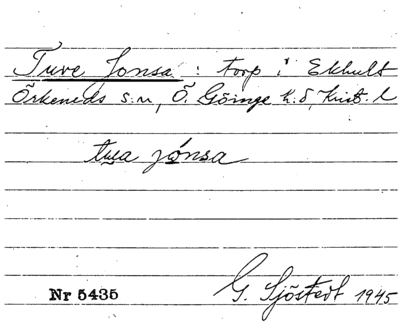 Tuve Jonsa : torp i Ekhult
Örkeneds s:n, Ö. Göinge h.d, Krist. l
tua jónsa
Nr 5435
G. Sjöstedt 1945